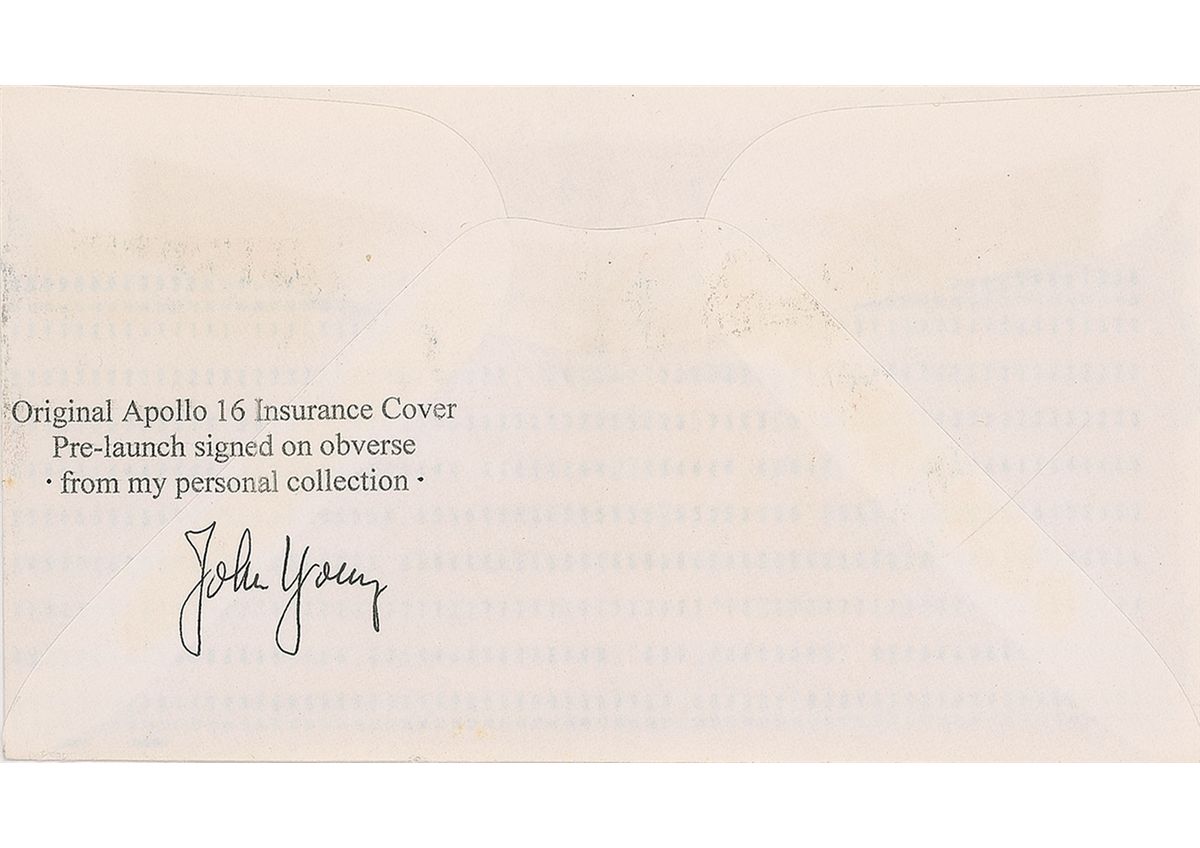 Original Apollo 16 Insurance Cover
Pre-launch signed on obverse
· from my personal collection ·
John Young